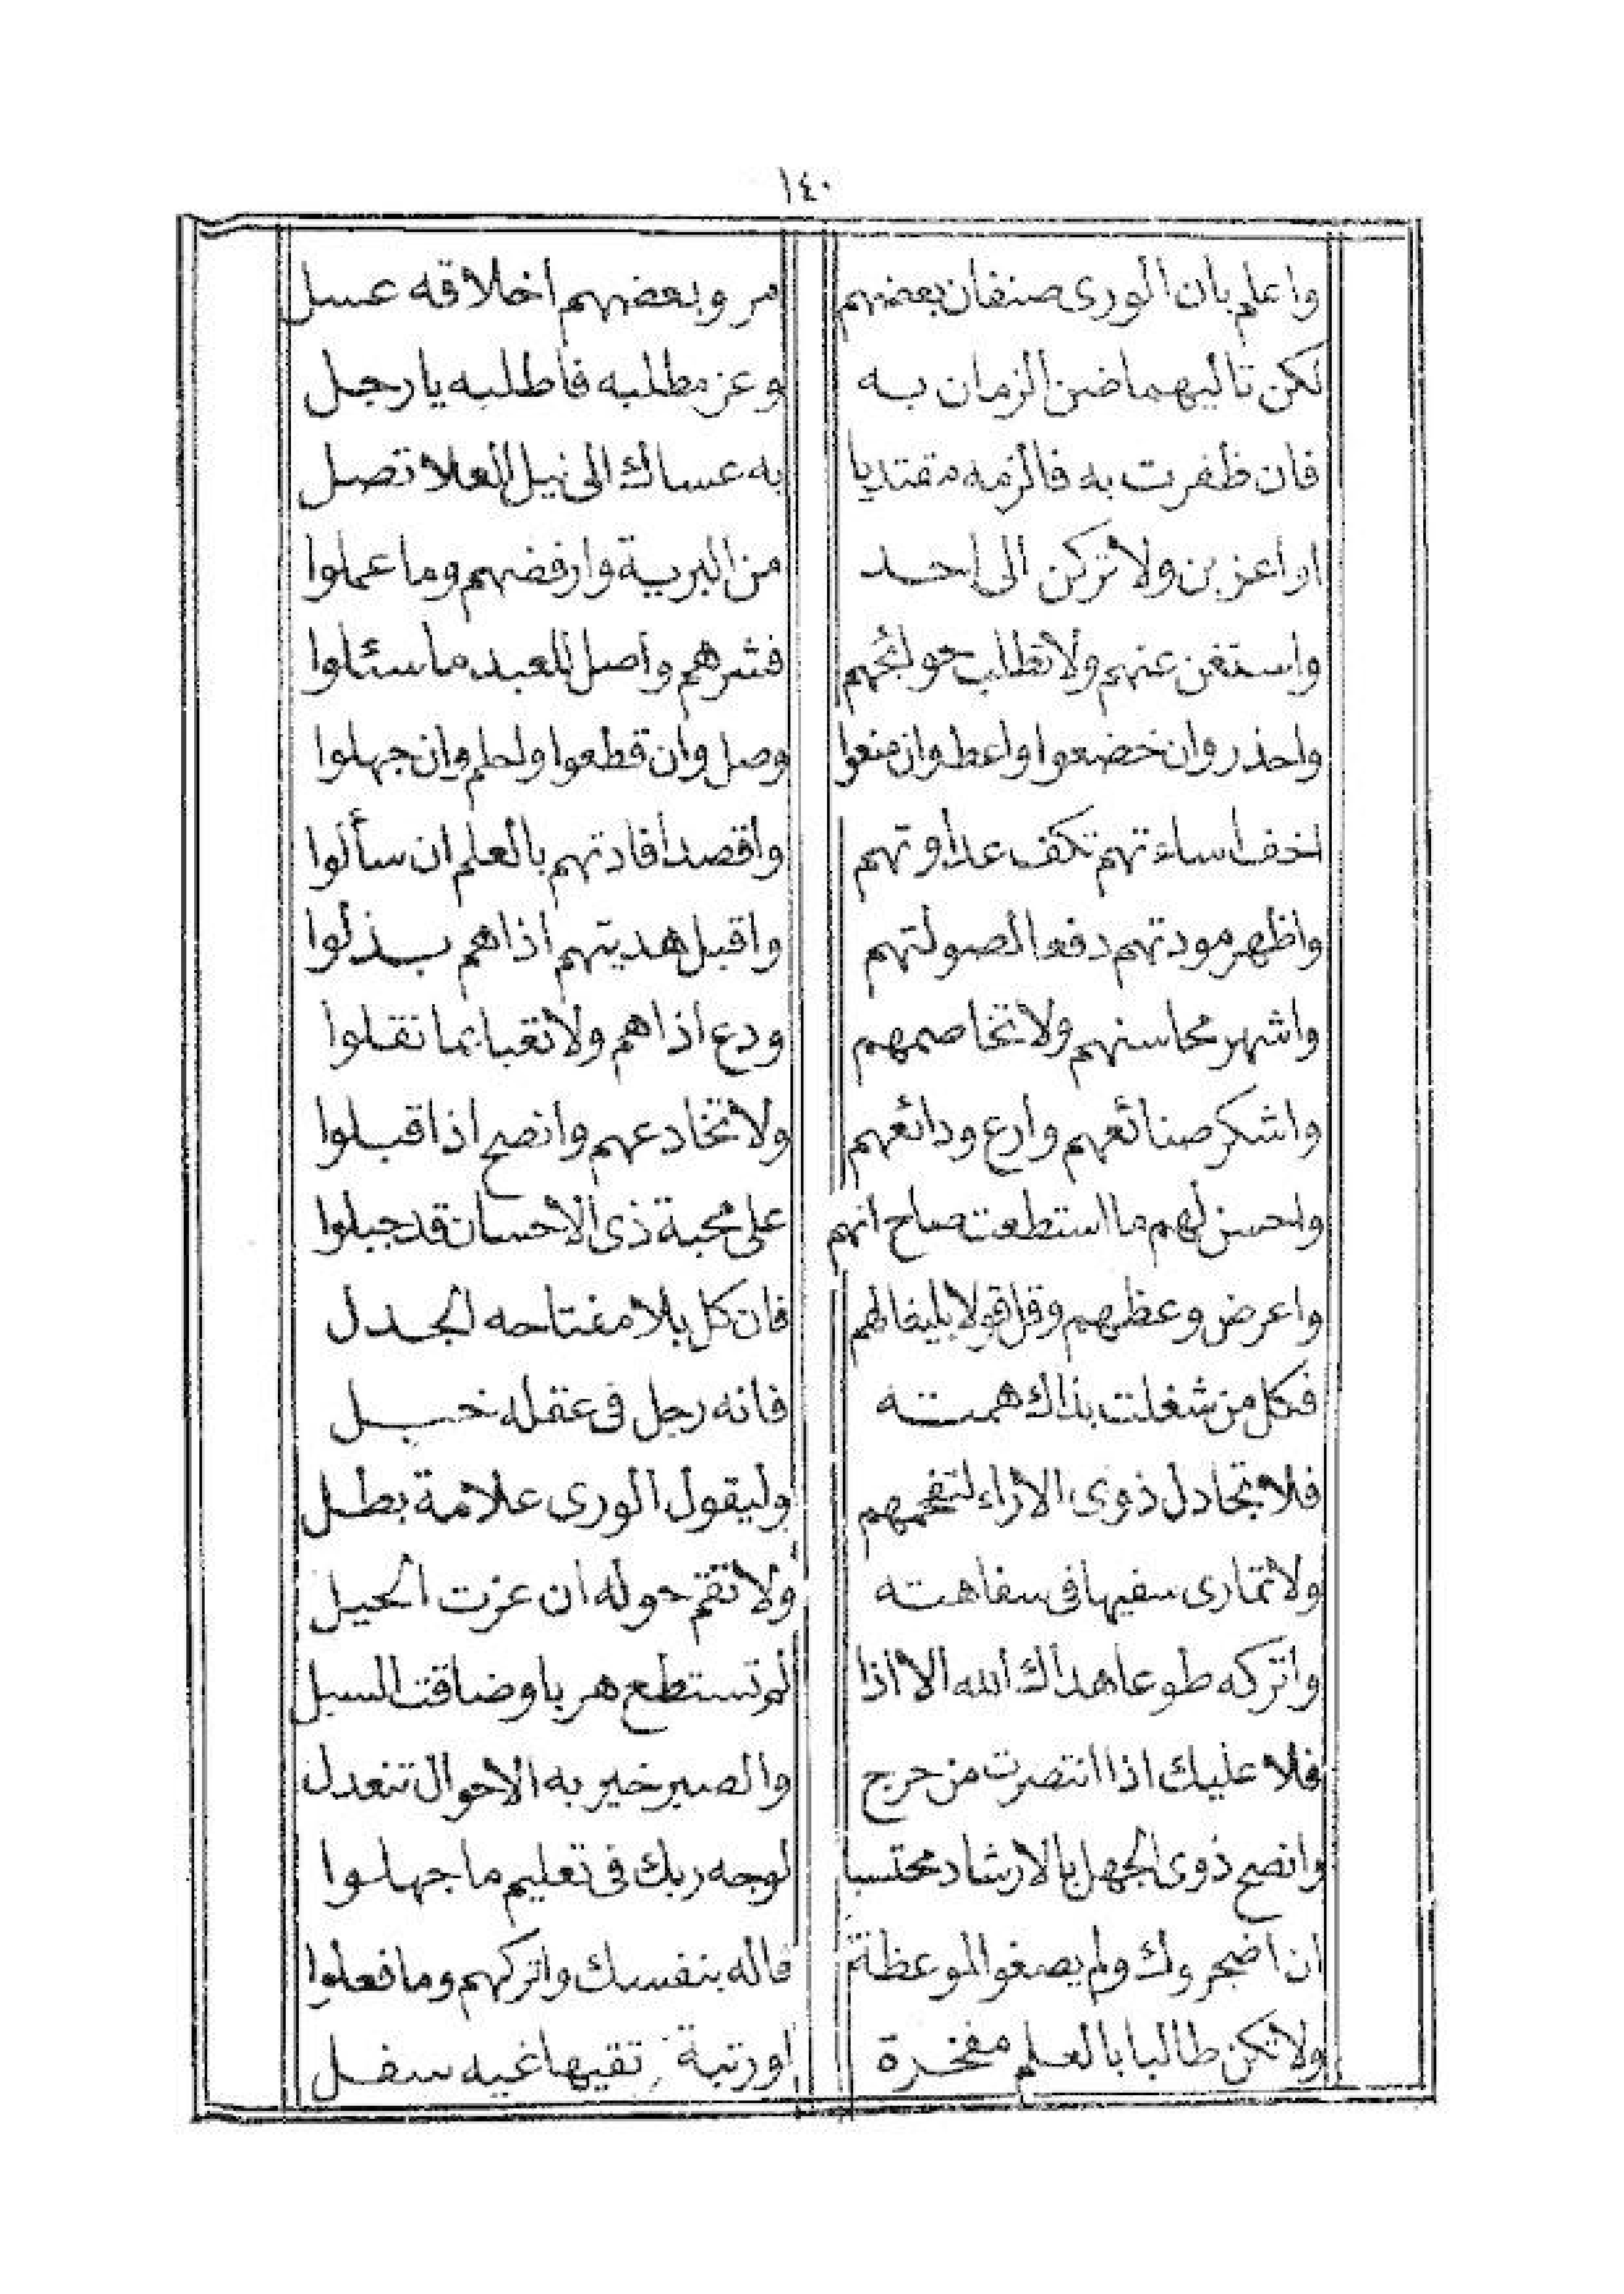 ١٤٠
واعلم بان الورى صنفان بعضهم مر وبعضهم اخلاقه عسل
لكن تاليهما ضن الزمان به وعز مطلبه فاطلبه يا رجل
فان ظفرت به فالزمه مقتديا به عساك الى نيل العلا تصل
او اعزبن ولا تركن الى احد من البرية وارفضهم وما عملوا
واستغن عنهم ولا تطلب حوائجهم فشرهم واصل للعبد ما سئلوا
واحذر وان خضعوا واعط وان منعوا وصل وان قطعوا واحلم وان جهلوا
اخف اساءتهم تكف عداوتهم واقصد افادتهم بالعلم ان سألوا
واظهر مودتهم دفعا لصولتهم واقبل هديتهم اذا هم بذلوا
واشهر محاسنهم ولا تخاصمهم ودع اذاهم ولا تعبا بما نقلوا
واشكر صنائعهم وارع ودائعهم ولا تخادعهم وانصح اذا قبلوا
واحسن لهم ما استطعت صاح انهم على محبة ذى الاحسان قد جبلوا
واعرض وعظهم وقل قولا بليغا لهم فان كل بلا مفتاحه الجدل
فكل من شغلت بذاك همته فانه رجل فى عقله خبل
فلا تجادل ذوى الاراء لتفحمهم وليقول الورى علامة بطل
ولا تمارى سفيها فى سفاهته ولا تقم حوله ان عزت الحيل
واتركه طوعا هداك الله الا اذا لم تستطع هربا وضاقت السبل
فلا عليك اذا انتصرت من حرج والصبر خير به الاحوال تنعدل
وانصح ذوى الجهل بالارشاد محتسبا لوجه ربك فى تعليم ما جهلوا
ان اضجروك ولم يصغوا لموعظة فاله بنفسك واتركهم وما فعلوا
ولا تكن طالبا بالعلم مفخرة او رتبة تقيها غيه سفل